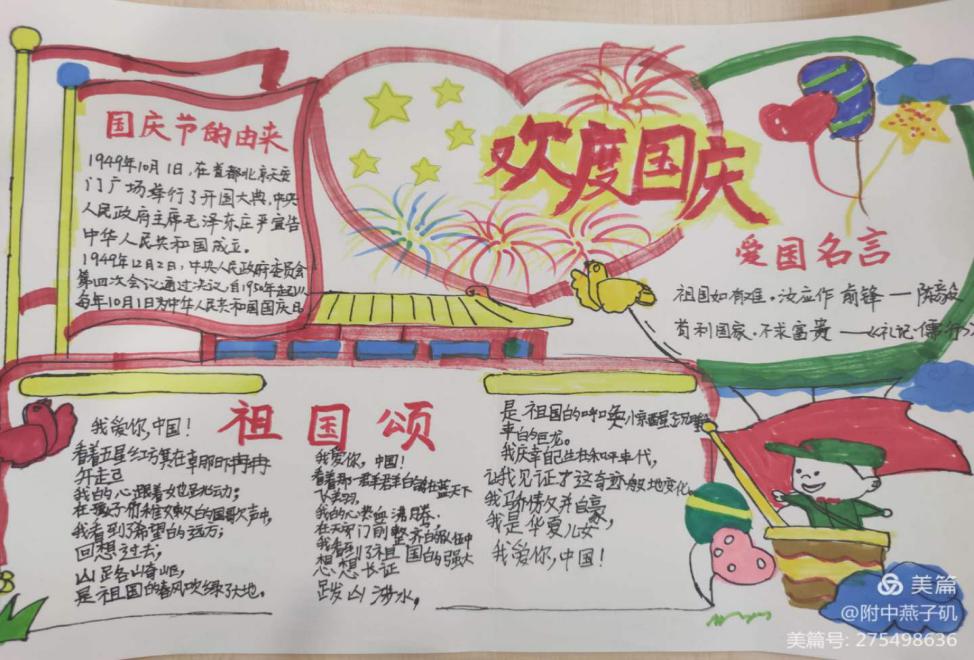 国庆节的由来
1949年10月1日，在首都北京天安
门广场举行了开国大典，中央
人民政府主席毛泽东庄严宣告
中华人民共和国成立。
1949年12月2日，中央人民政府委员会
第四次会议通过决议，自1950年起，以
每年10月1日为中华人民共和国国庆日
欢度国庆
爱国名言
祖国如有难。汝应作前锋——陈毅
苟利国家，不求富贵——《礼记·儒行》
祖国颂
我爱你，中国！
看着五星红旗在
升起
我的心跟着
在孩子们稚嫩的国歌声中，
我看到了希望的
回想过去；
是祖国的春风吹绿了大地。
我爱你，中国！
看着那一群群白鸽在蓝天下
我的心热血沸腾，
在天安门前整齐的队伍中
我看到了祖国的强大
想想长征
跋山涉水，
是祖国的呼唤，惊醒了沉睡
的巨龙。
我庆幸自己生在和平年代，
让我见证了这奇迹般地变化，
我豪情万丈自豪，
我是华夏儿女，
我爱你，中国！
美篇
@附中燕子矶
美篇号: 275498636